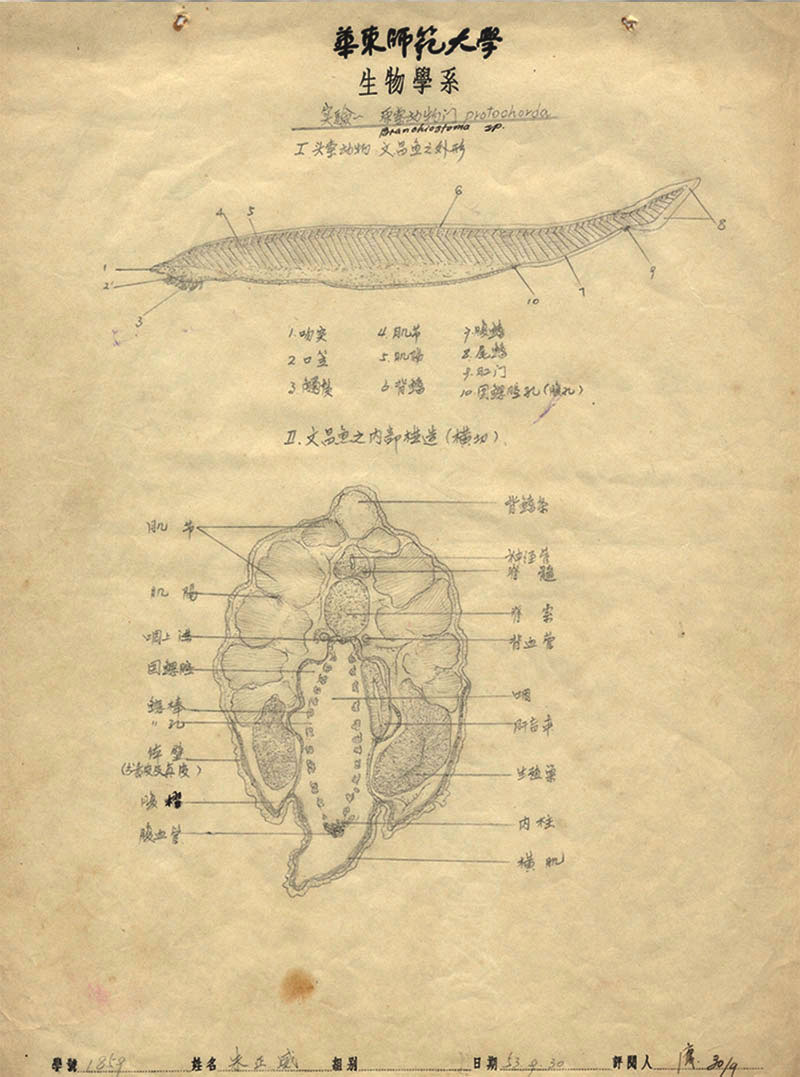 華東師範大學
生物學系
实驗一 原索动物门 protochorda
Branchiostoma sp.
I 头索动物 文昌鱼之外形
6
4
5
8
1
2
9
10
7
3
1. 吻突
4. 肌节
7. 腹鳍
2. 口笠
5. 肌隔
8. 尾鳍
9. 肛门
3. 触鬚
6. 背鳍
10. 围鳃腔孔(腹孔)
II. 文昌鱼之内部构造(横切)
背鳍条
肌 节
神经管
脊 髓
肌 隔
脊 索
咽上溝
背血管
围鳃腔
咽
鳃棒
〃孔
肝盲囊
体 壁
(含表皮及真皮)
生殖巢
腹褶
内 柱
腹血管
横 肌
學號 1859 姓名 朱正威 組别 日期 53.9.30 評閱人 30/9